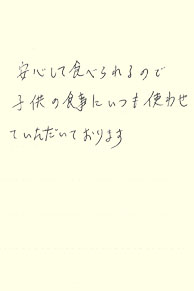 安心して食べられるので
子供の食事にいつも使わせ
ていただいております